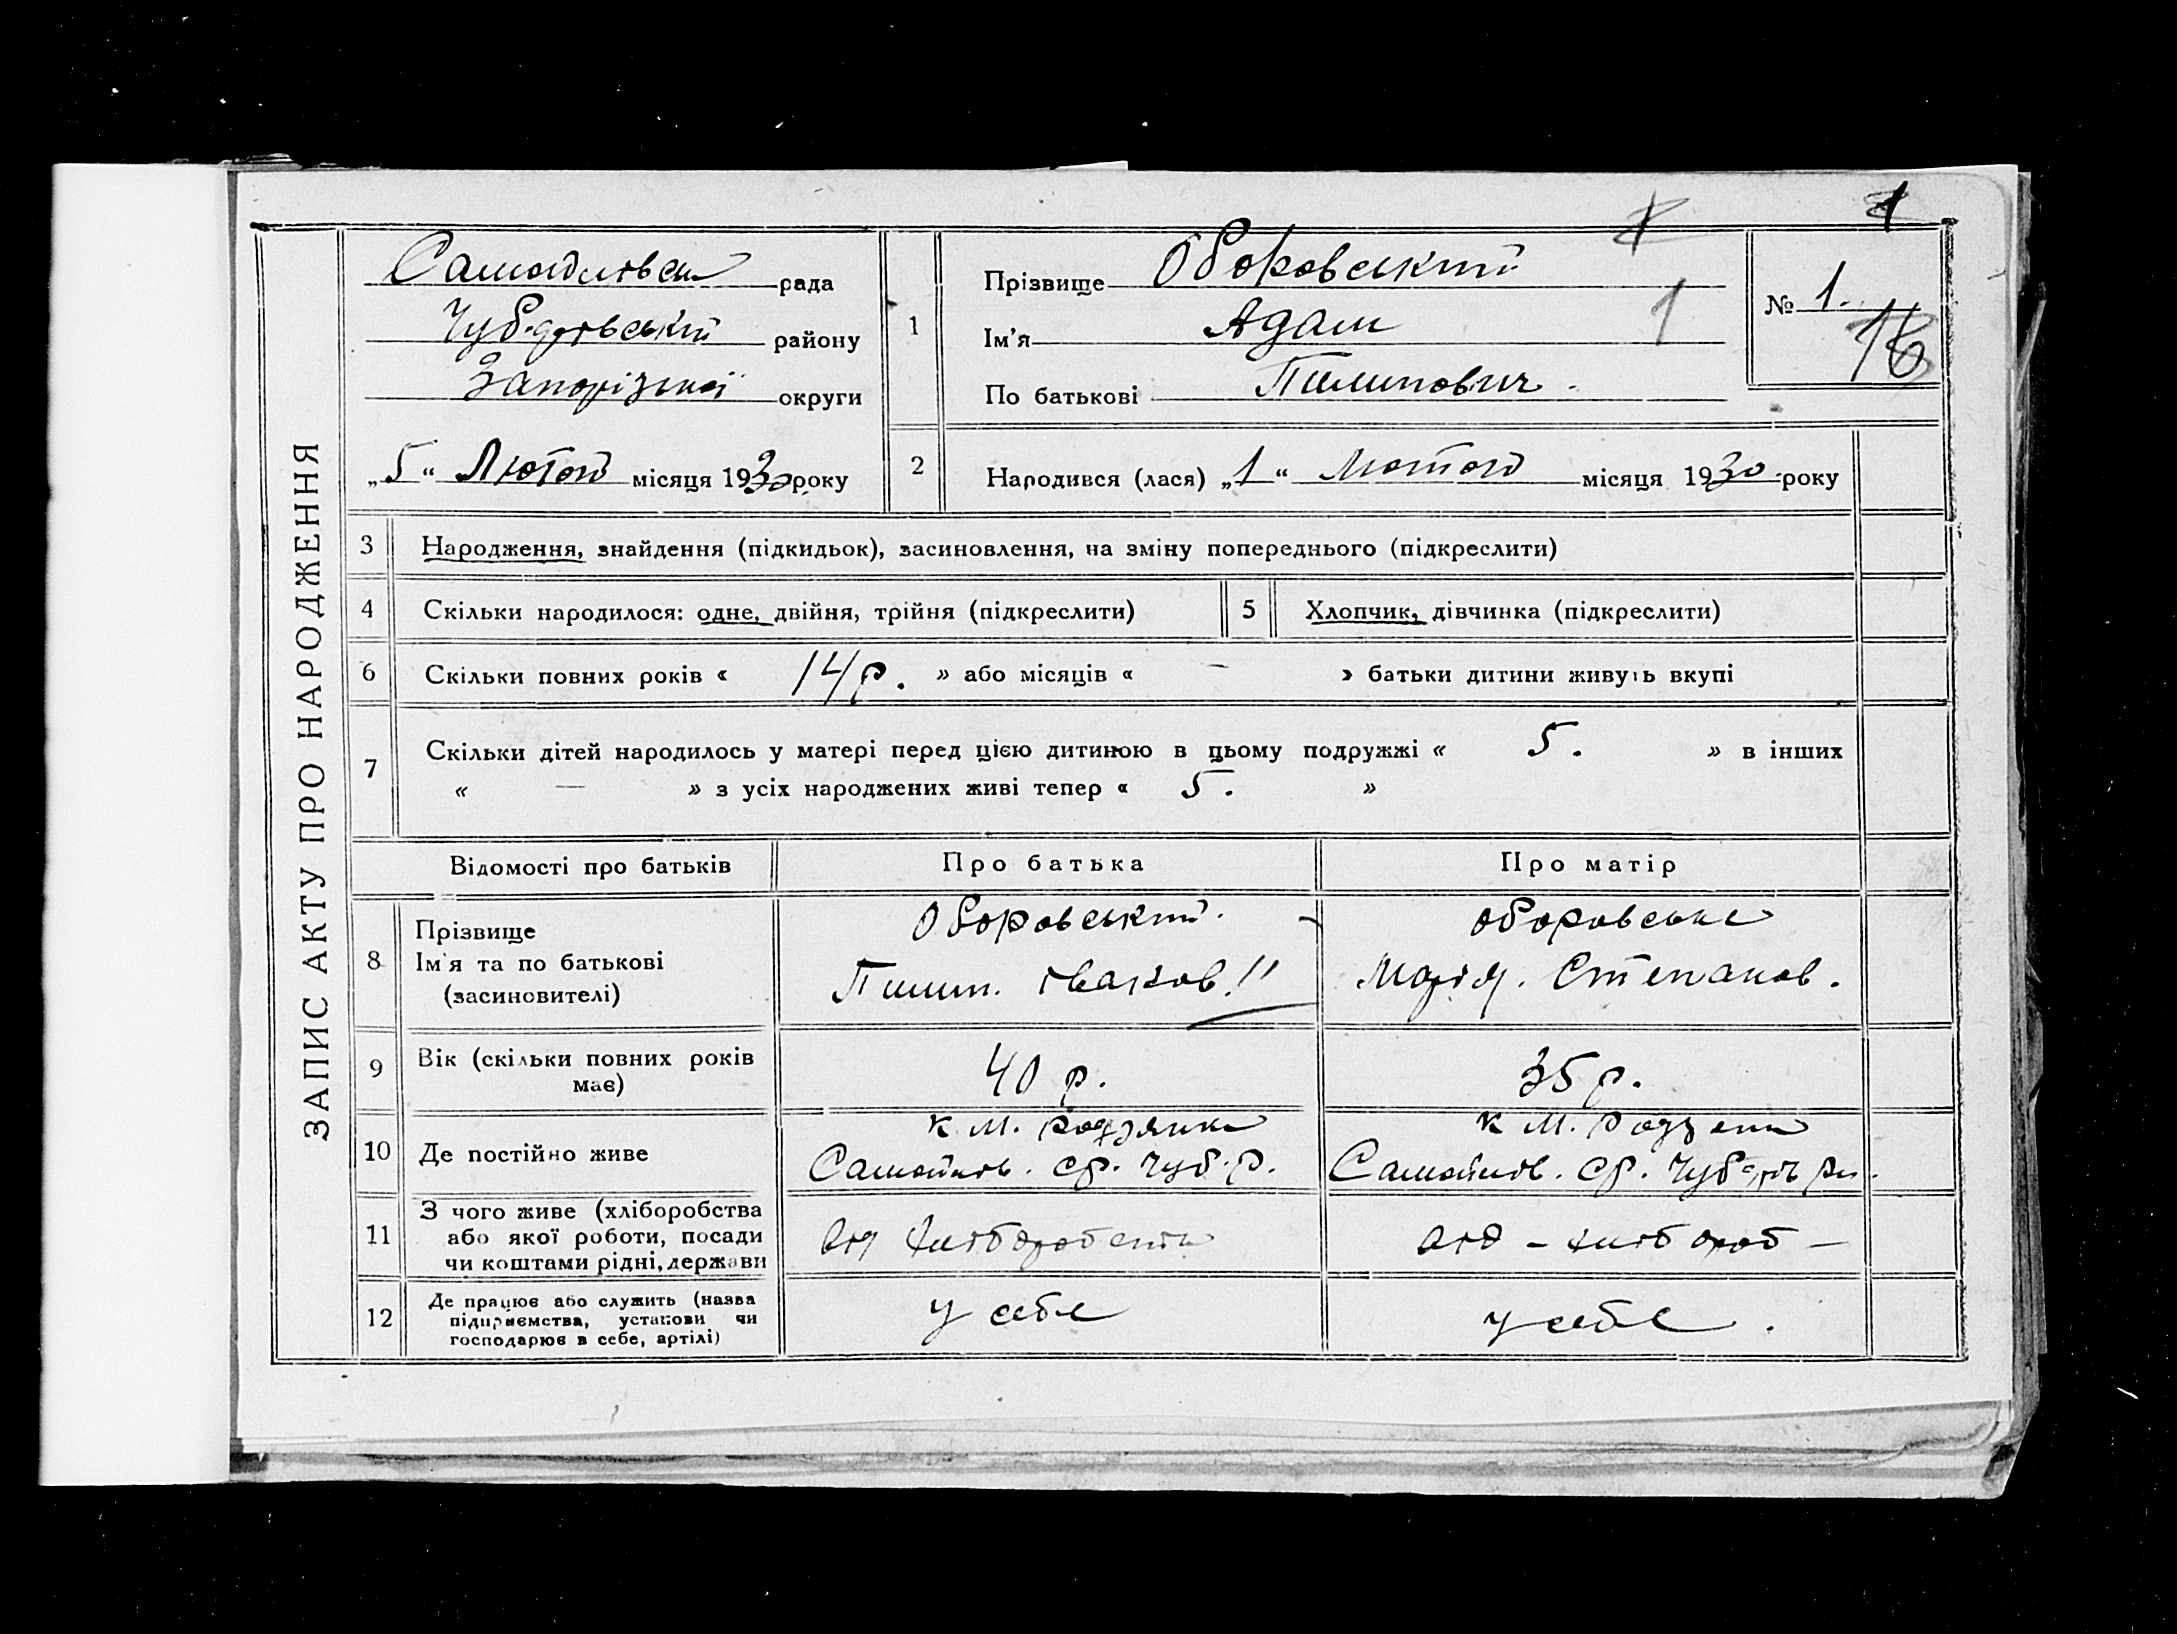 ЗАПИС АКТУ ПРО НАРОДЖЕННЯ
рада
району
Запорізької округи
„5“ Лютого місяця 1930 року
1
Прізвище Оборовський
Ім’я Адам
По батькові Пилипович
№ 1.
16
1
2
Народився (лася) „1“ Лютого місяця 1930 року
3
Народження, знайдення (підкидьок), засиновлення, на зміну попереднього (підкреслити)
4
Скільки народилося: одне, двійня, трійня (підкреслити)
5
Хлопчик, дівчинка (підкреслити)
6
Скільки повних років « 14 р. » або місяців « — » батьки дитини живуть вкупі
7
Скільки дітей народилось у матері перед цією дитиною в цьому подружжі « 5. » в інших
« — » з усіх народжених живі тепер « 5. »
Відомості про батьків
Про батька
Про матір
8
Прізвище
Ім’я та по батькові
(засиновителі)
Оборовський
Пилип.
Оборовська
Марія. Степанов.
9
Вік (скільки повних років
має)
40 р.
35 р.
10
Де постійно живе
к М.
ср. Чуб. р.
к М.
ср.
11
З чого живе (хліборобства
або якої роботи, посади
чи коштами рідні, держави
від хліборобства
від – хлібороб –
12
Де працює або служить (назва
підприємства, установи чи
господарює в себе, артілі)
у себе
у себе.